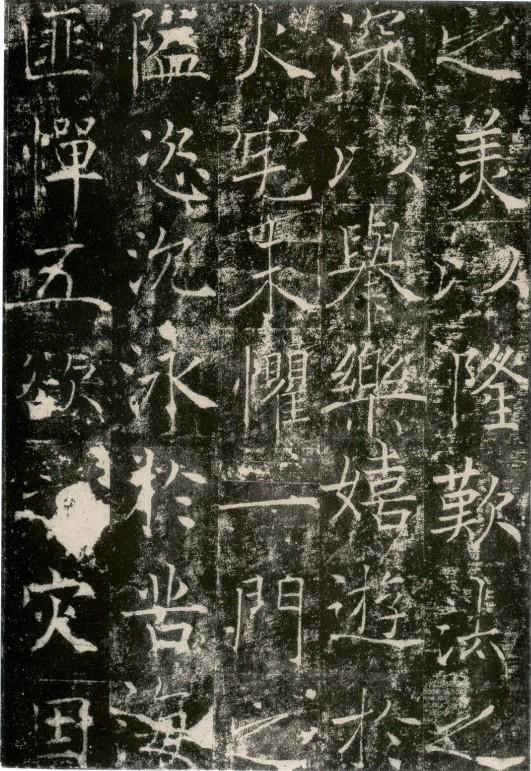 之美以隆歎法之
深以舉樂嬉遊於
火宅未懼一門之
隘恣沉泳於苦海
匪憚五欲灾因